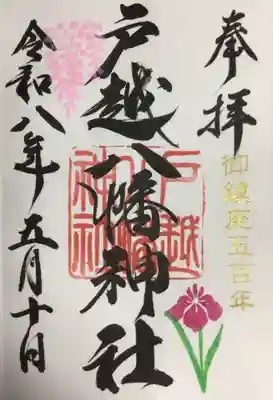 奉拝
御鎮座五百年
戸越八幡神社
戸越八幡神社
令和八年五月十日